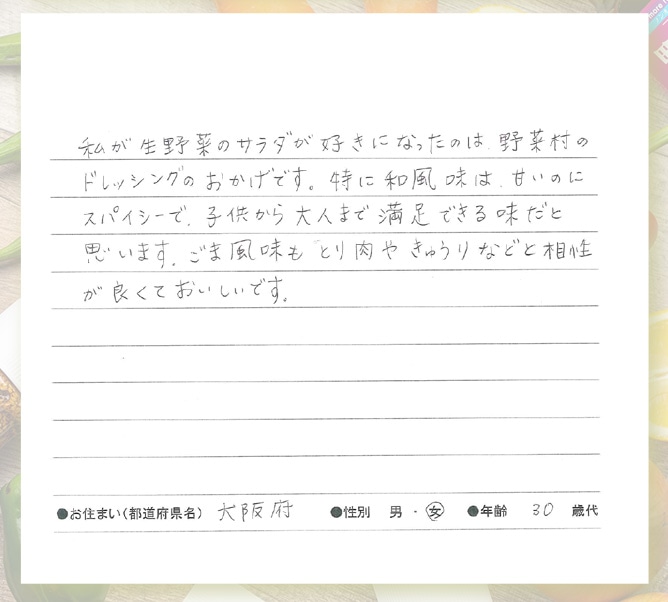 私が生野菜のサラダが好きになったのは、野菜村の
ドレッシングのおかげです。特に和風味は、甘いのに
スパイシーで、子供から大人まで満足できる味だと
思います。ごま風味もとり肉やきゅうりなどと相性
が良くておいしいです。
●お住まい(都道府県名) 大阪府 ●性別 男・女 ●年齢 30 歳代